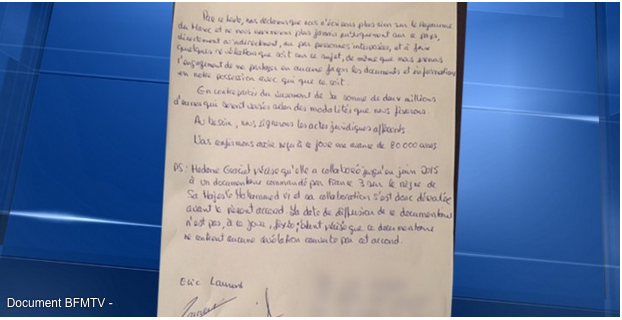 Par ce texte, nous déclarons que nous n'écrirons plus rien sur le Royaume
du Maroc et ne nous exprimerons plus jamais publiquement sur ce pays,
directement ou indirectement, ou par personnes interposées, et à faire
quelques révélations que ce soit sur ce sujet, de même que nous prenons
l'engagement de ne partager en aucune façon les documents et informations
en notre possession avec qui que ce soit.
En contrepartie du versement de la somme de deux millions
d'euros qui seront versés selon des modalités que nous fixerons.
Au besoin, nous signerons les actes juridiques afférents
Nous confirmons avoir reçu à ce jour une avance de 80 000 euros
PS: Madame Graciet précise qu'elle a collaboré jusqu'en juin 2015
à un documentaire commandé par France 3 sur le règne de
Sa Majesté Mohammed VI et sa collaboration s'est donc déroulée
avant le présent accord. La date de diffusion de ce documentaire
n'est pas, à ce jour, fixée; étant précisé que ce documentaire
ne contient aucune révélation couverte par cet accord.
Eric Laurent
Document BFMTV -